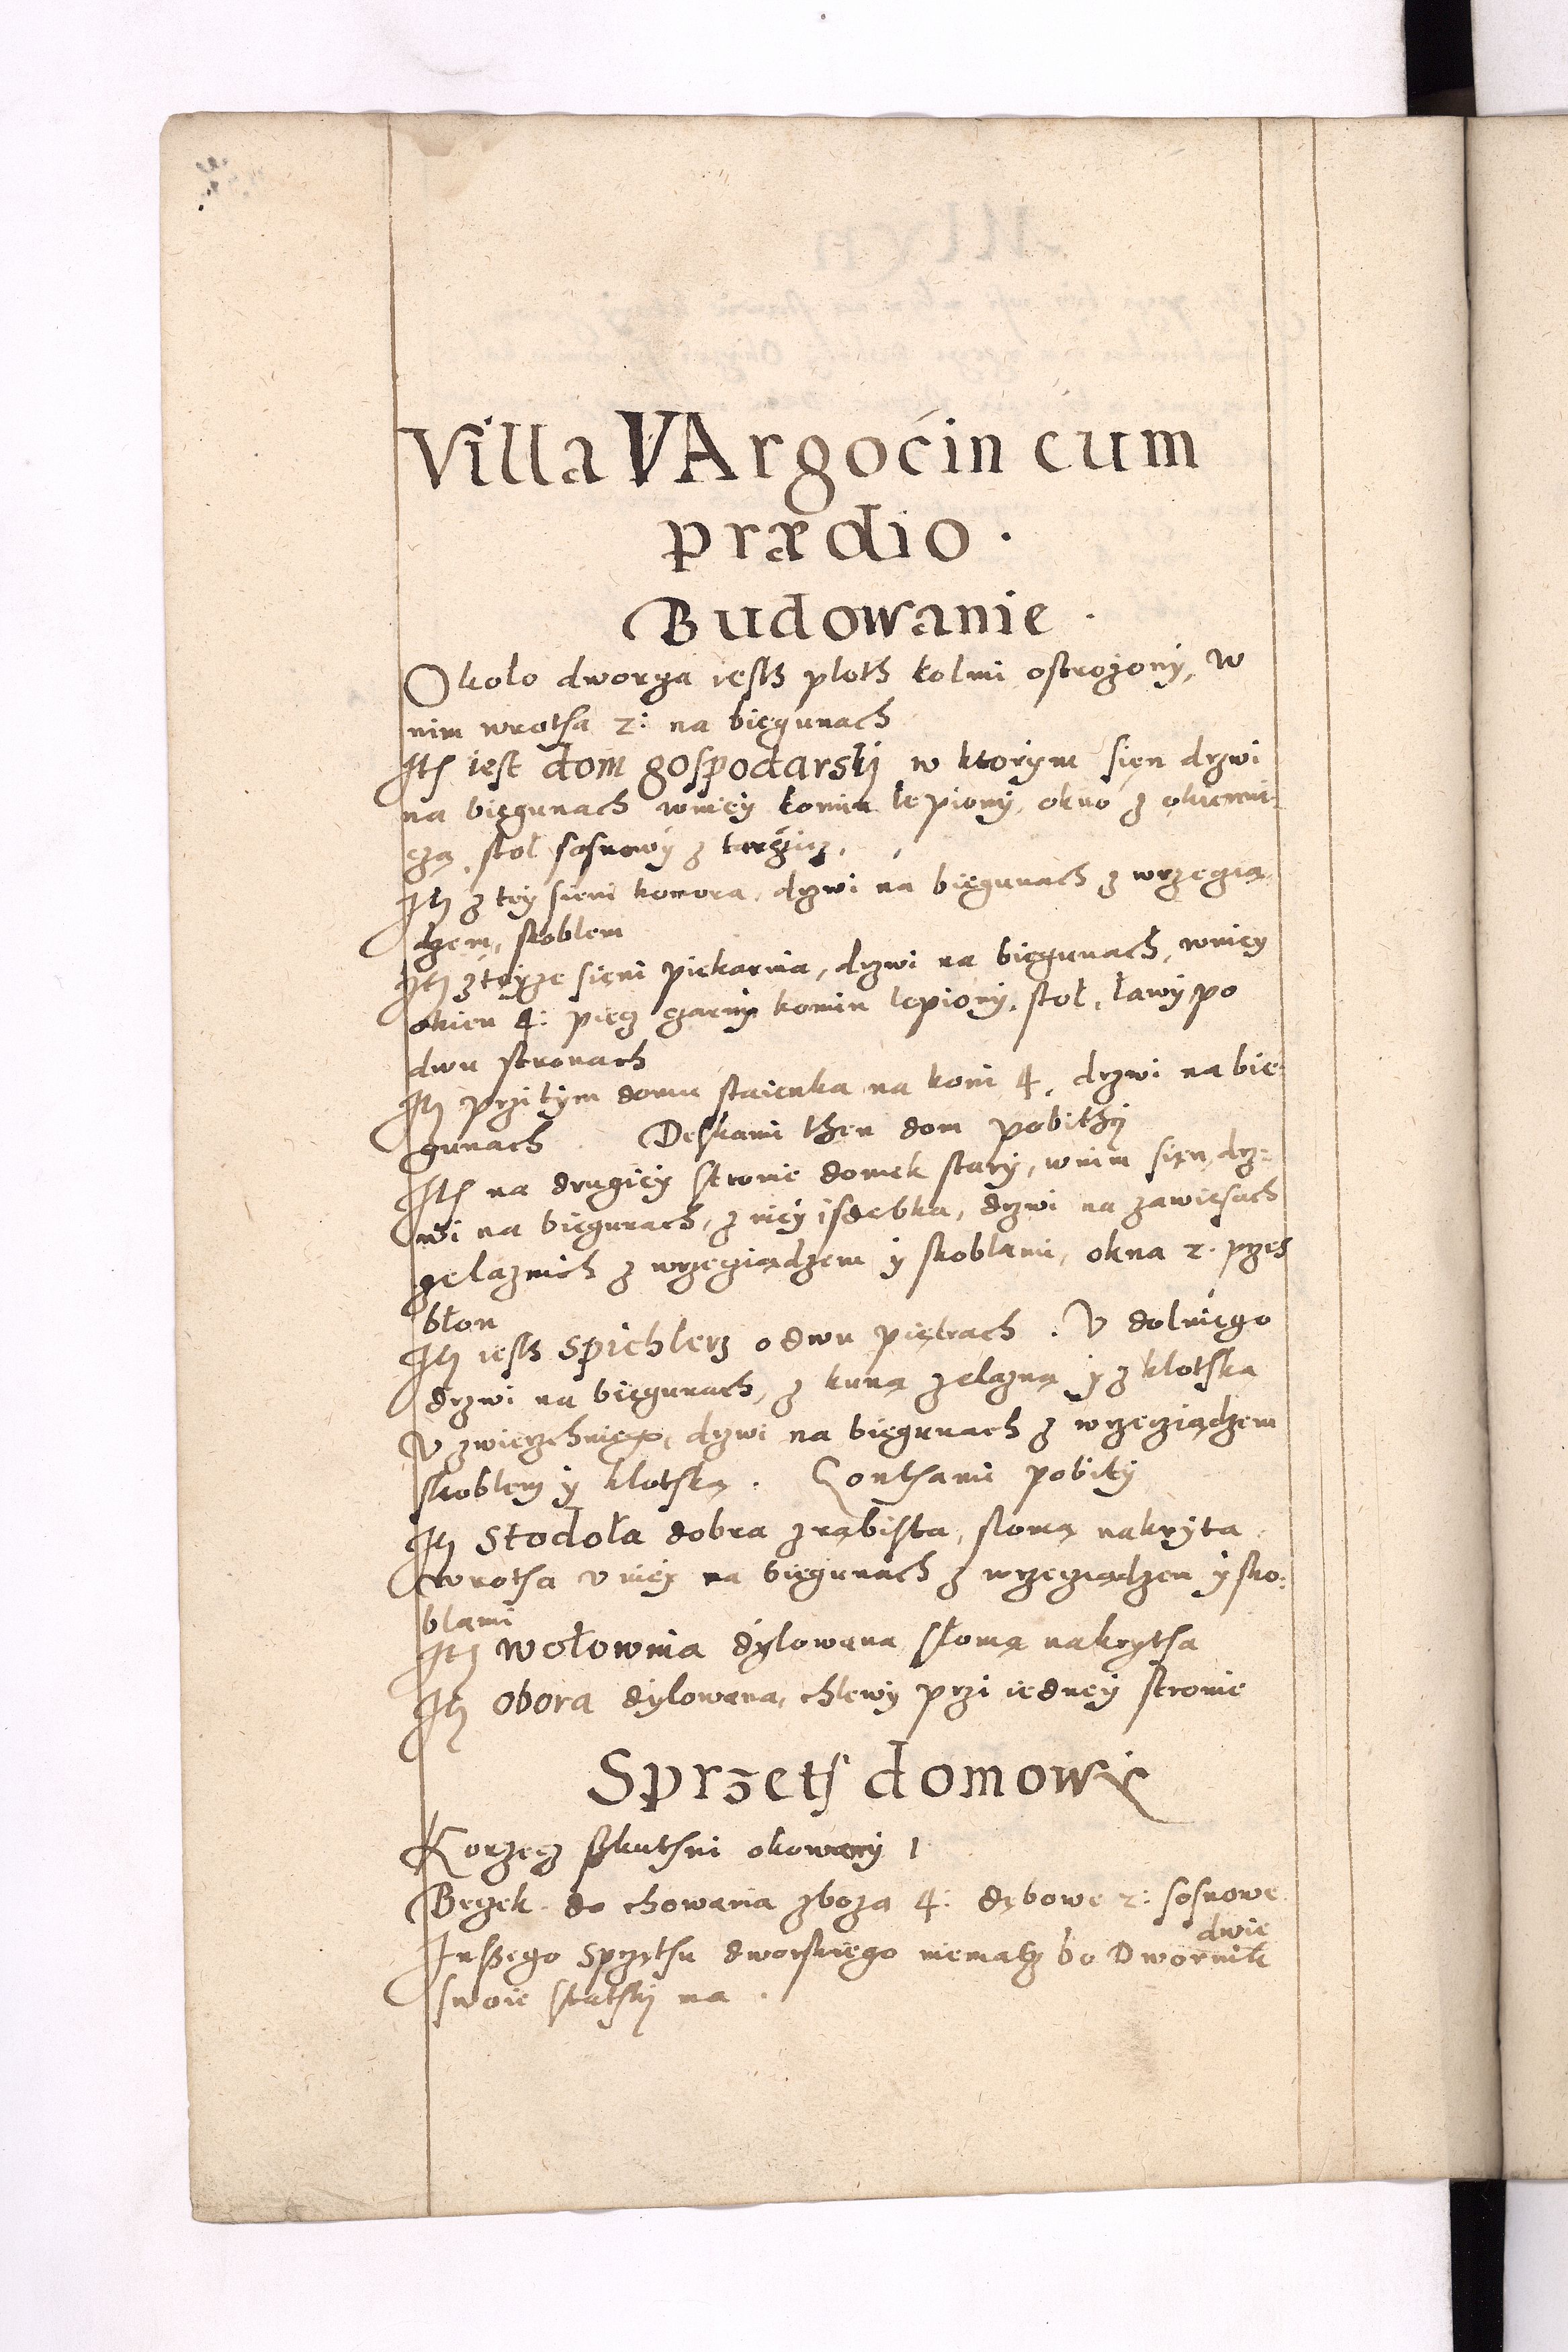 Villa VArgocin cum
prædio .
Budowanie .
Okolo dworza iesth ploth kolmi ostrozony, w
nim wrotha 2: na biegunach
Ith iest dom gospodarskj w ktorym sien drzwi
na biegunach wniey komin lepiony, okno z okienni-
czą, stol sosnowy z tarczicz.
Ith z tey sieni komora, drzwi na biegunach z wrzeczią
dzem, skoblem
Ith z teyze sieni piekarnia, drzwi na biegunach, wniey
okien 4: piecz czarny komin lepiony, stol, ławy po
dwu stronach
Ith przitym domu staienka na koni 4, drzwi na bie
gunach . Deskami then dom pobithy
Ith na drugiey stronie domek stary, wnim sien, drz-
wi na biegunach, z niey isdebka, drzwi na zawiesach
zelaznich z wrzecziądzem y skoblami, okna 2. przes
błon
Ith iesth Spichlerz o dwu piętrach . V dolniego
drzwi na biegunach, z kuną zelazną y z klotską
V zwierzchniego, drzwi na biegunach z wrzecziądzem
skoblem y klotską . Gonthami pobity
Ith Stodoła dobra zrąbista, slomą nakryta
wrotha v niey na biegunach z wrzecziądzem y sko-
blami
Ith wołownia dylowana słomą nakrytha
Ith obora dylowana, chlewy przi iedney stronie
Sprzeth domowy
Korzecz szkuthni okowany 1
Beczek do chowania zboza 4: dębowe 2: sosnowe
dwie
Inszego Sprzethu dworskiego niemasz bo Dwornik
swoie statskj ma .